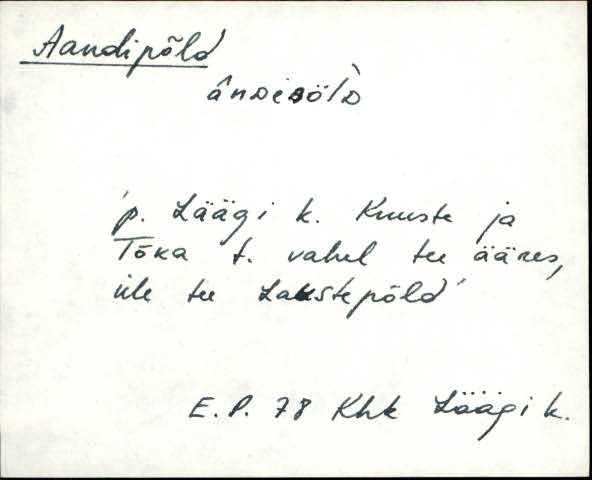 Aandipõld
ânDiBölD
'p. Läägi k. Kuuste ja
Tõka t. vahel tee ääres,
üle tee Laustepõld'
E.P. 78 Khk Läägi k.